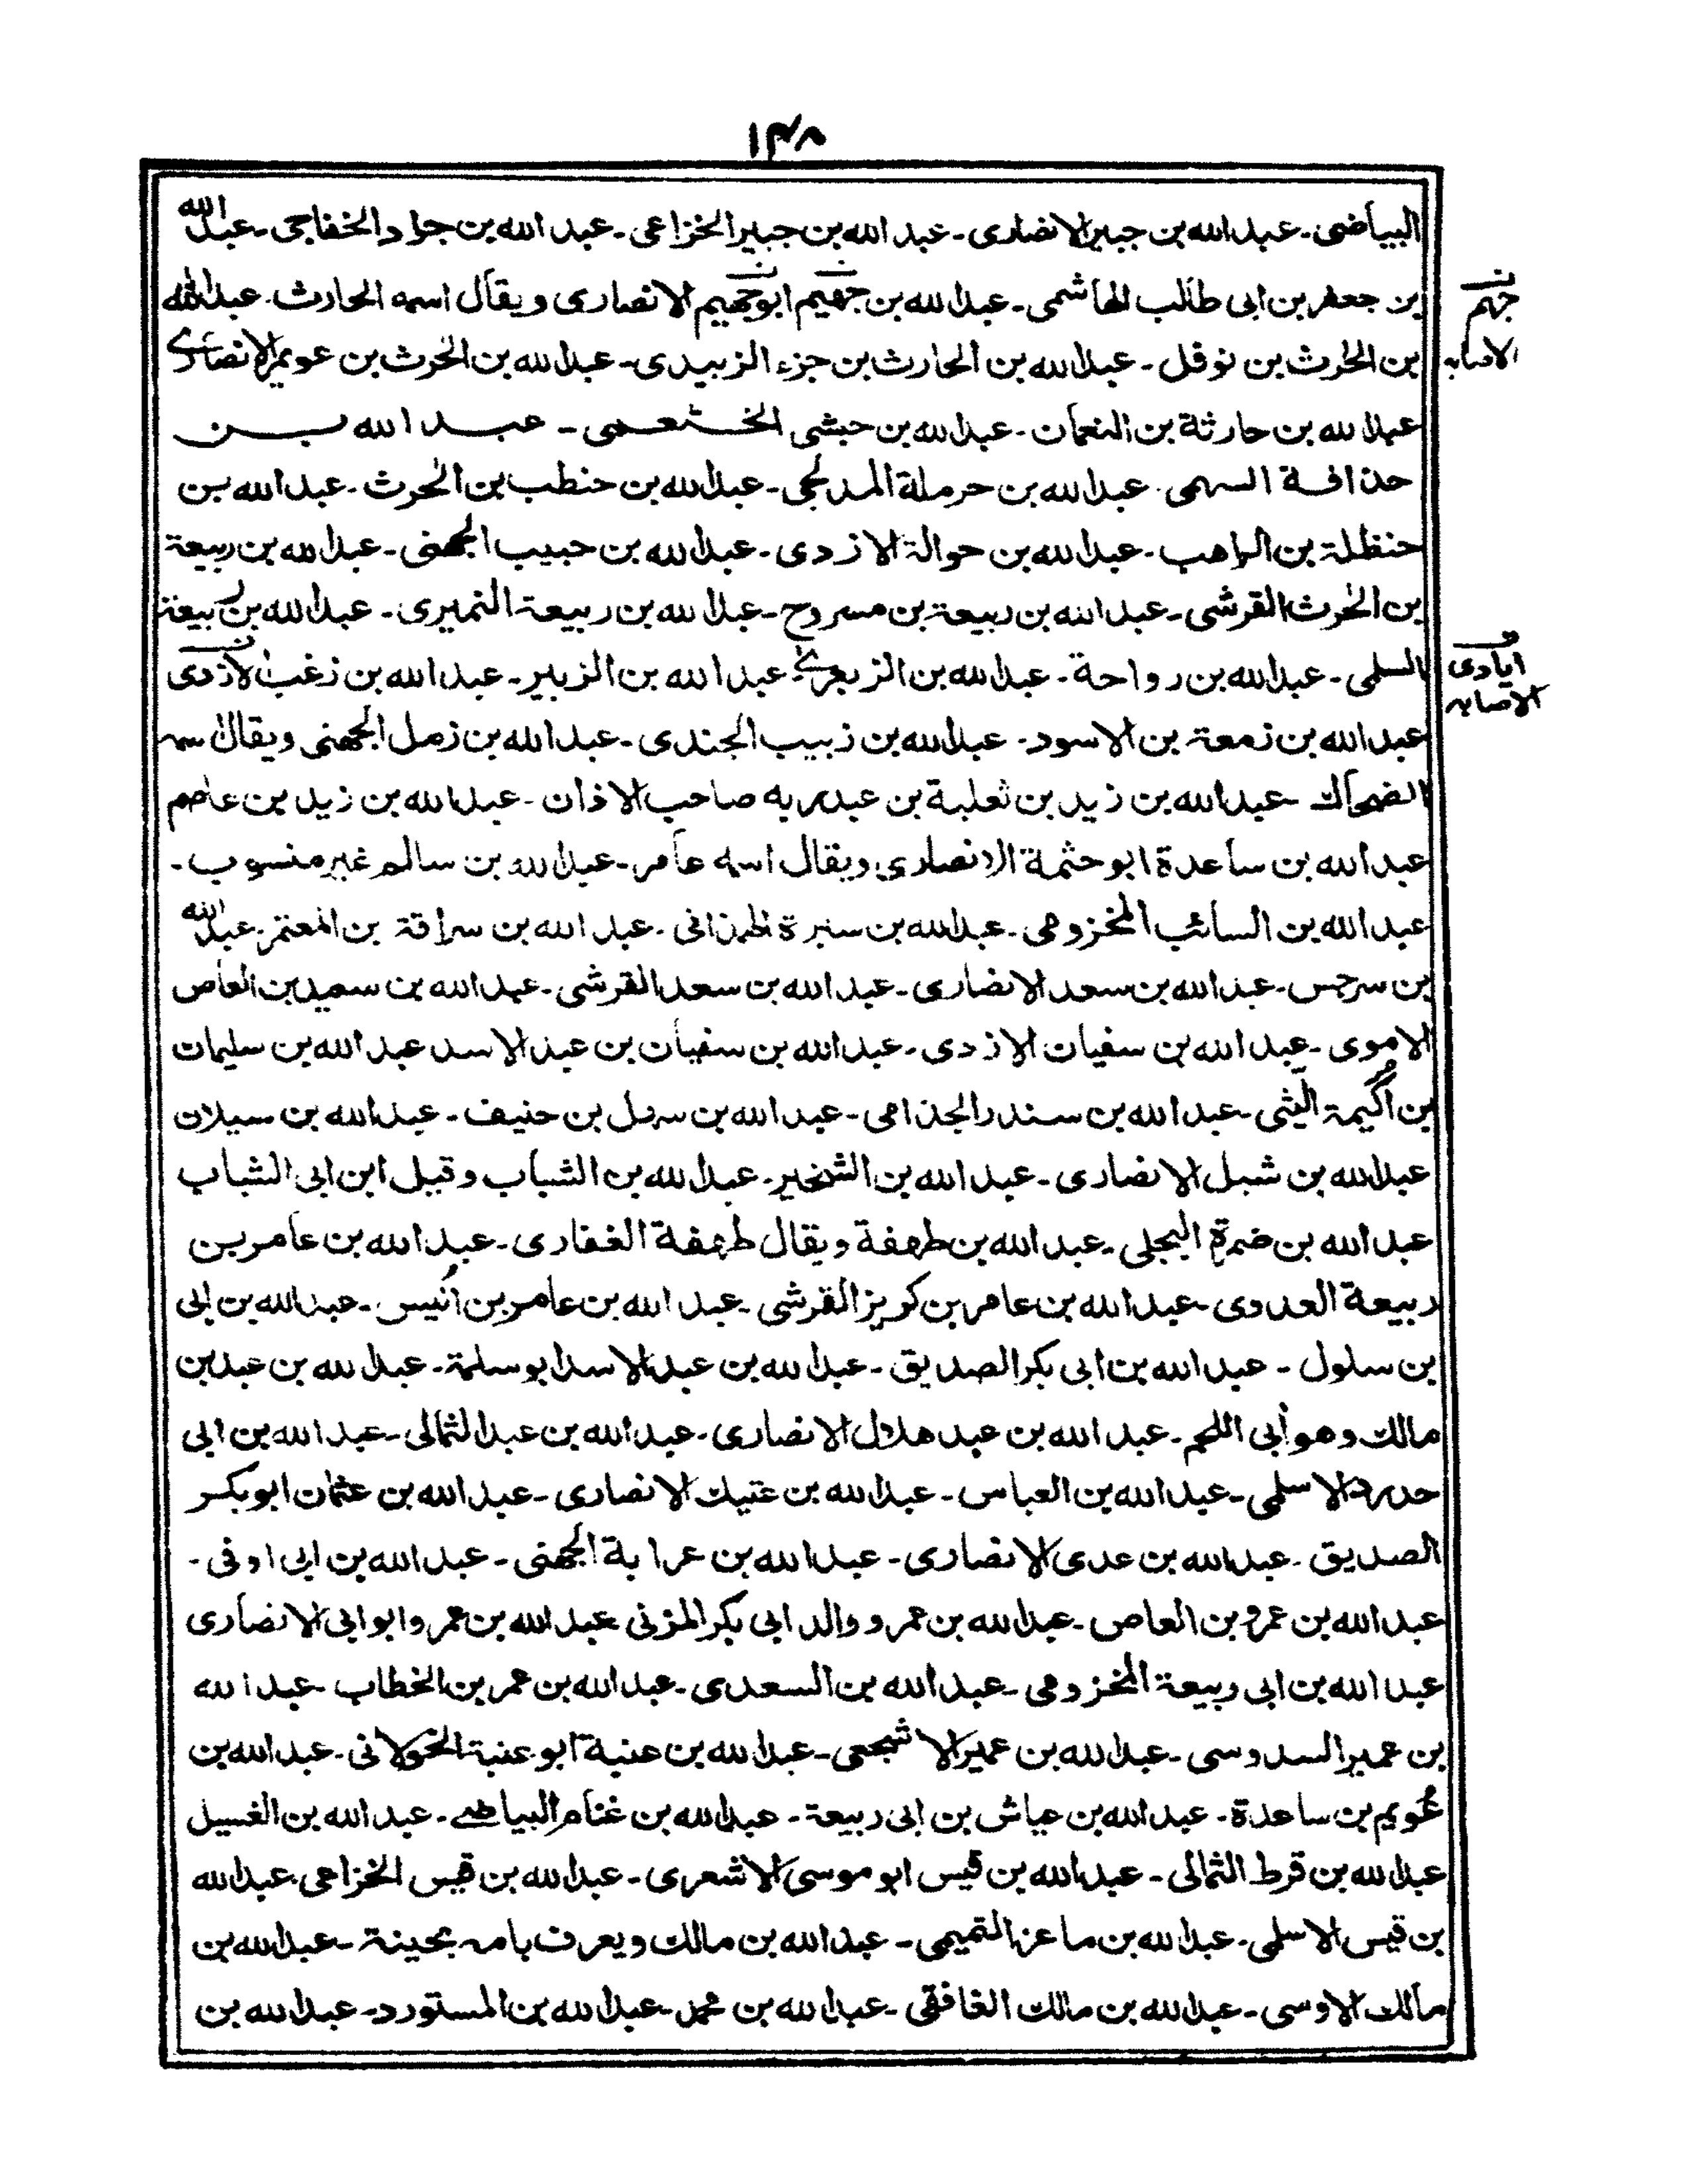 ١٣٨
البياضى۔ عبد الله بن جبير الانصارى۔ عبد الله بن جبير الخزاعى۔ عبد الله بن جراد الخفاجى۔ عبد الله
بن جعفر بن ابى طالب الهاشمى۔ عبد الله بن جهيم ابو جهيم الانصارى ويقال اسمه الحارث۔ عبد الله
جهم
الاصابه
بن الحٰرث بن نوفل۔ عبد الله بن الحارث بن جزء الزبيدى۔ عبد الله بن الحٰرث بن عويمر الانصارى
عبد الله بن حارثة بن النعمان۔ عبد الله بن حبشى الخثعمى۔ عبد الله بن
حذافة السهمى۔ عبد الله بن حرملة المدلجى۔ عبد الله بن حنطب بن الحٰرث۔ عبد الله بن
حنظلة بن الراهب۔ عبد الله بن حوالة الازدى۔ عبد الله بن حبيب الجهنى۔ عبد الله بن ربيعة
بن الحٰرث القرشى۔ عبد الله بن ربيعة بن مسروح۔ عبد الله بن ربيعة النميرى۔ عبد الله بن ربيعة
السلمى۔ عبد الله بن رواحة۔ عبد الله بن الزبعرى عبد الله بن الزبير۔ عبد الله بن زغب الازدى
ايادى
الاصابه
عبد الله بن زمعة بن الاسود۔ عبد الله بن زبيب الجندى۔ عبد الله بن زمل الجهنى ويقال اسمه
الضحاك۔ عبد الله بن زيد بن ثعلبة بن عبدربه صاحب الاذان۔ عبد الله بن زيد بن عاصم
عبد الله بن ساعدة ابو حثمة الانصارى ويقال اسمه عامر۔ عبد الله بن سالم غير منسوب۔
عبد الله بن السائب المخزومى۔ عبد الله بن سنبرة الهمذانى۔ عبد الله بن سراقة بن المعتمر۔ عبد الله
بن سرجس۔ عبد الله بن سعد الانصارى۔ عبد الله بن سعد القرشى۔ عبد الله بن سعيد بن العاص
الاموى۔ عبد الله بن سفيان الازدى۔ عبد الله بن سفيان بن عبد الاسد عبد الله بن سليمان
بن اكيمة الليثى۔ عبد الله بن سندر الجذامى۔ عبد الله بن سهل بن حنيف۔ عبد الله بن سيلان
عبد الله بن شبل الانصارى۔ عبد الله بن الشخير۔ عبد الله بن الشباب وقيل ابن ابى الشباب
عبد الله بن ضمرة البجلى۔ عبد الله بن طهفة ويقال طهفة الغفارى۔ عبد الله بن عامر بن
ربيعة العدوى۔ عبد الله بن عامر بن كريز القرشى۔ عبد الله بن عامر بن اُنيس۔ عبد الله بن ابى
بن سلول۔ عبد الله بن ابى بكر الصديق۔ عبد الله بن عبد الاسد ابو سلمة۔ عبد الله بن عبد بن
مالك وهو أبى اللحم۔ عبد الله بن عبد هلال الانصارى۔ عبد الله بن عبد الثمالى۔ عبد الله بن ابى
حدرد الاسلمى۔ عبد الله بن العباس۔ عبد الله بن عتيك الانصارى۔ عبد الله بن عثمان ابو بكر
الصديق۔ عبد الله بن عدى الانصارى۔ عبد الله بن عرابة الجهنى۔ عبد الله بن ابى اوفى۔
عبد الله بن عمرو بن العاص۔ عبد الله بن عمرو والد ابى بكر المزنى عبد الله بن عمرو ابو ابى الانصارى
عبد الله بن ابى ربيعة المخزومى۔ عبد الله بن السعدى۔ عبد الله بن عمر بن الخطاب۔ عبد الله
بن عمير السدوسى۔ عبد الله بن عمير الاشجعى۔ عبد الله بن عنبة ابو عنبة الخولانى۔ عبد الله بن
عُويم بن ساعدة۔ عبد الله بن عياش بن ابى ربيعة۔ عبد الله بن غنام البياضے۔ عبد الله بن الغسيل
عبد الله بن قرط الثمالى۔ عبد الله بن قيس ابو موسى الاشعرى۔ عبد الله بن قيس الخزاعى عبد الله
بن قيس الاسلمى۔ عبد الله بن ماعز التميمى۔ عبد الله بن مالك ويعرف بامه بحينة۔ عبد الله بن
مالك الاوسى۔ عبد الله بن مالك الغافقى۔ عبد الله بن محمد۔ عبد الله بن المستورد۔ عبد الله بن